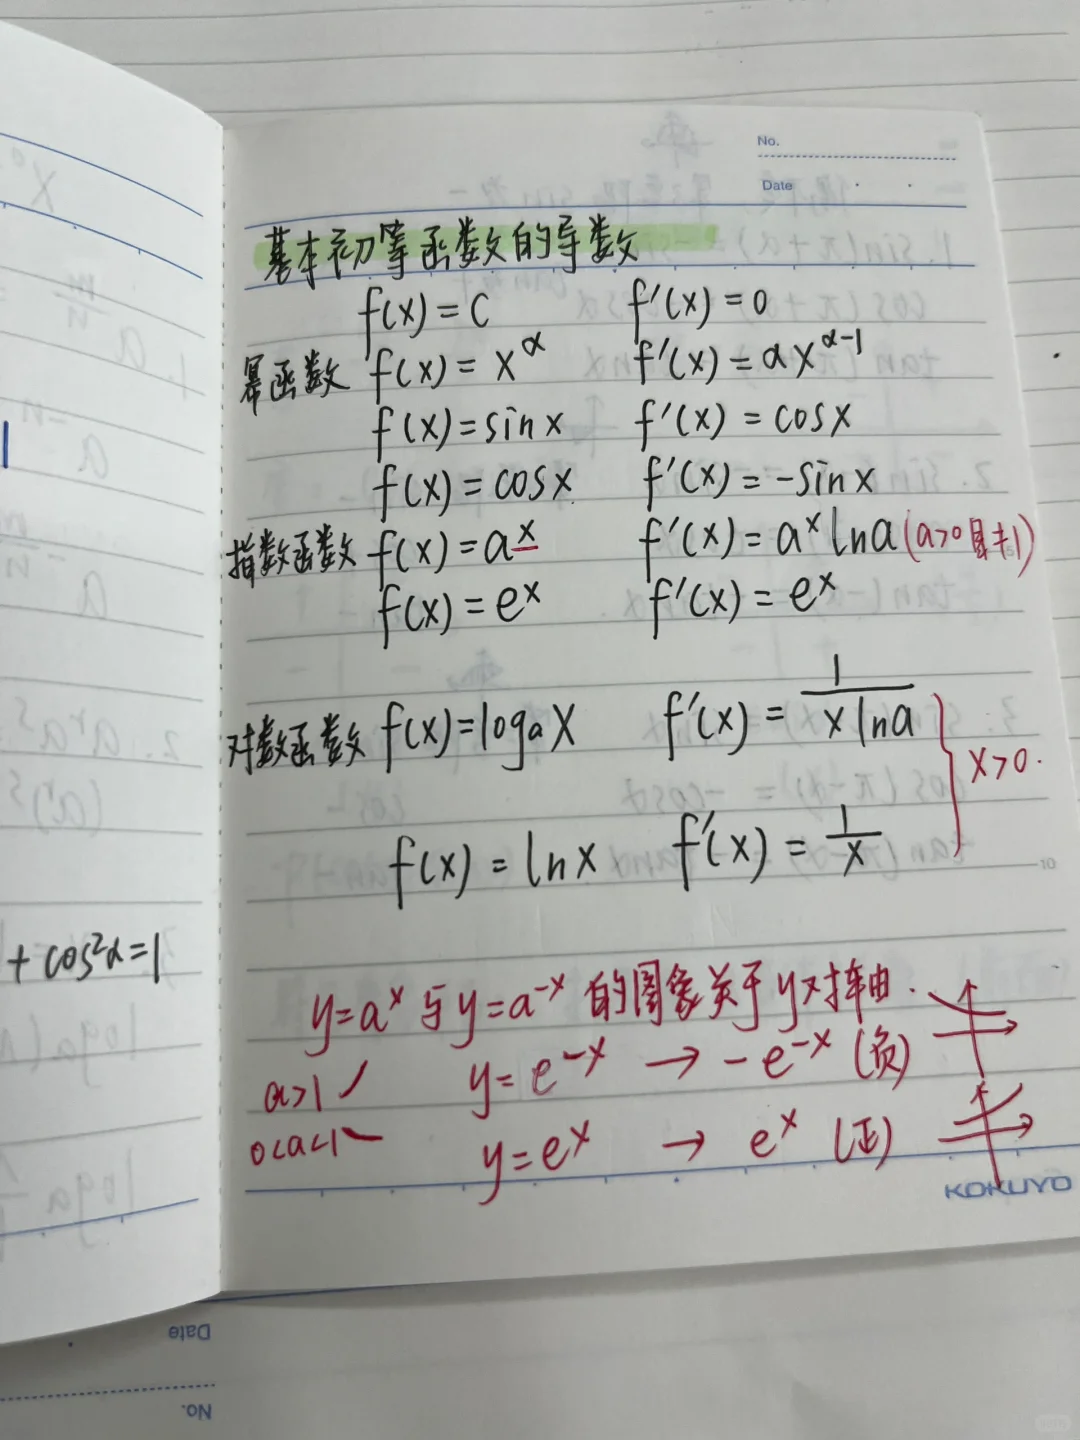 No.
Date
基本初等函数的导数
f(x)=C f'(x)=0
幂函数 f(x)=x^α f'(x)=αx^(α-1)
f(x)=sinx f'(x)=cosx
f(x)=cosx f'(x)=-sinx
指数函数 f(x)=a^x f'(x)=a^x lna (a>0且≠1)
f(x)=e^x f'(x)=e^x
对数函数 f(x)=log_a X f'(x)=1/(x lna)
x>0.
f(x)=lnx f'(x)=1/x
10
+cos²α=1
y=a^x与y=a^-x的图象关于y对轴.
a>1 y=e^-x → -e^-x (负)
0<a<1 y=e^x → e^x (正)
KOKUYO
Date
No.